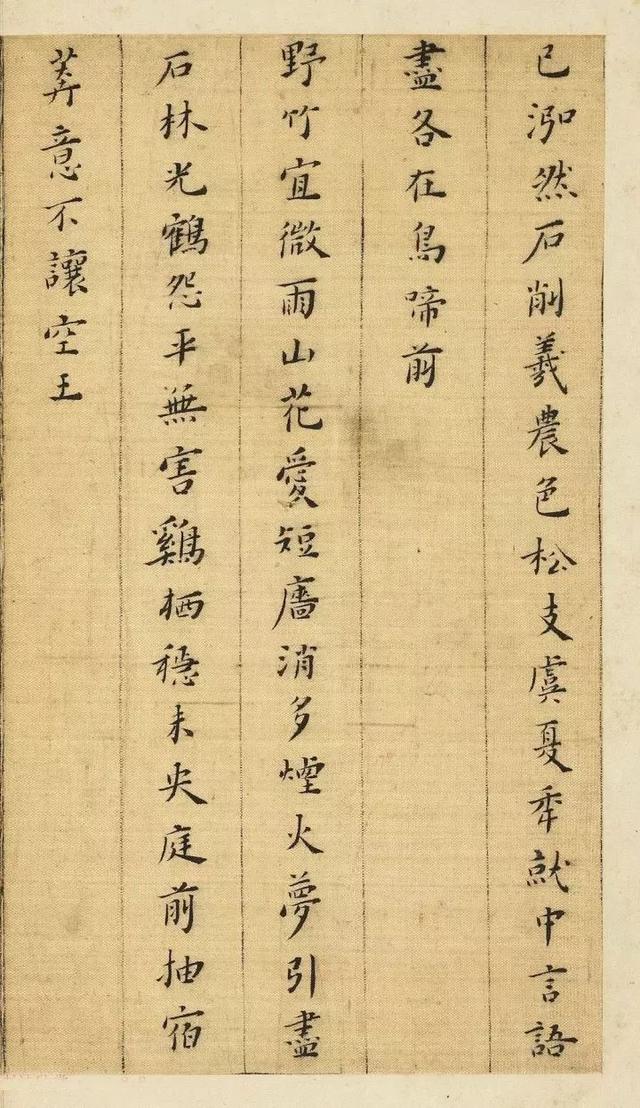 已泓然石削羲農色松支虞夏年就中言語
盡各在鳥啼前
野竹宜微雨山花愛短牆消多煙火夢引盡
石林光鶴怨平無害雞栖穩未央庭前抽宿
莽意不讓空王